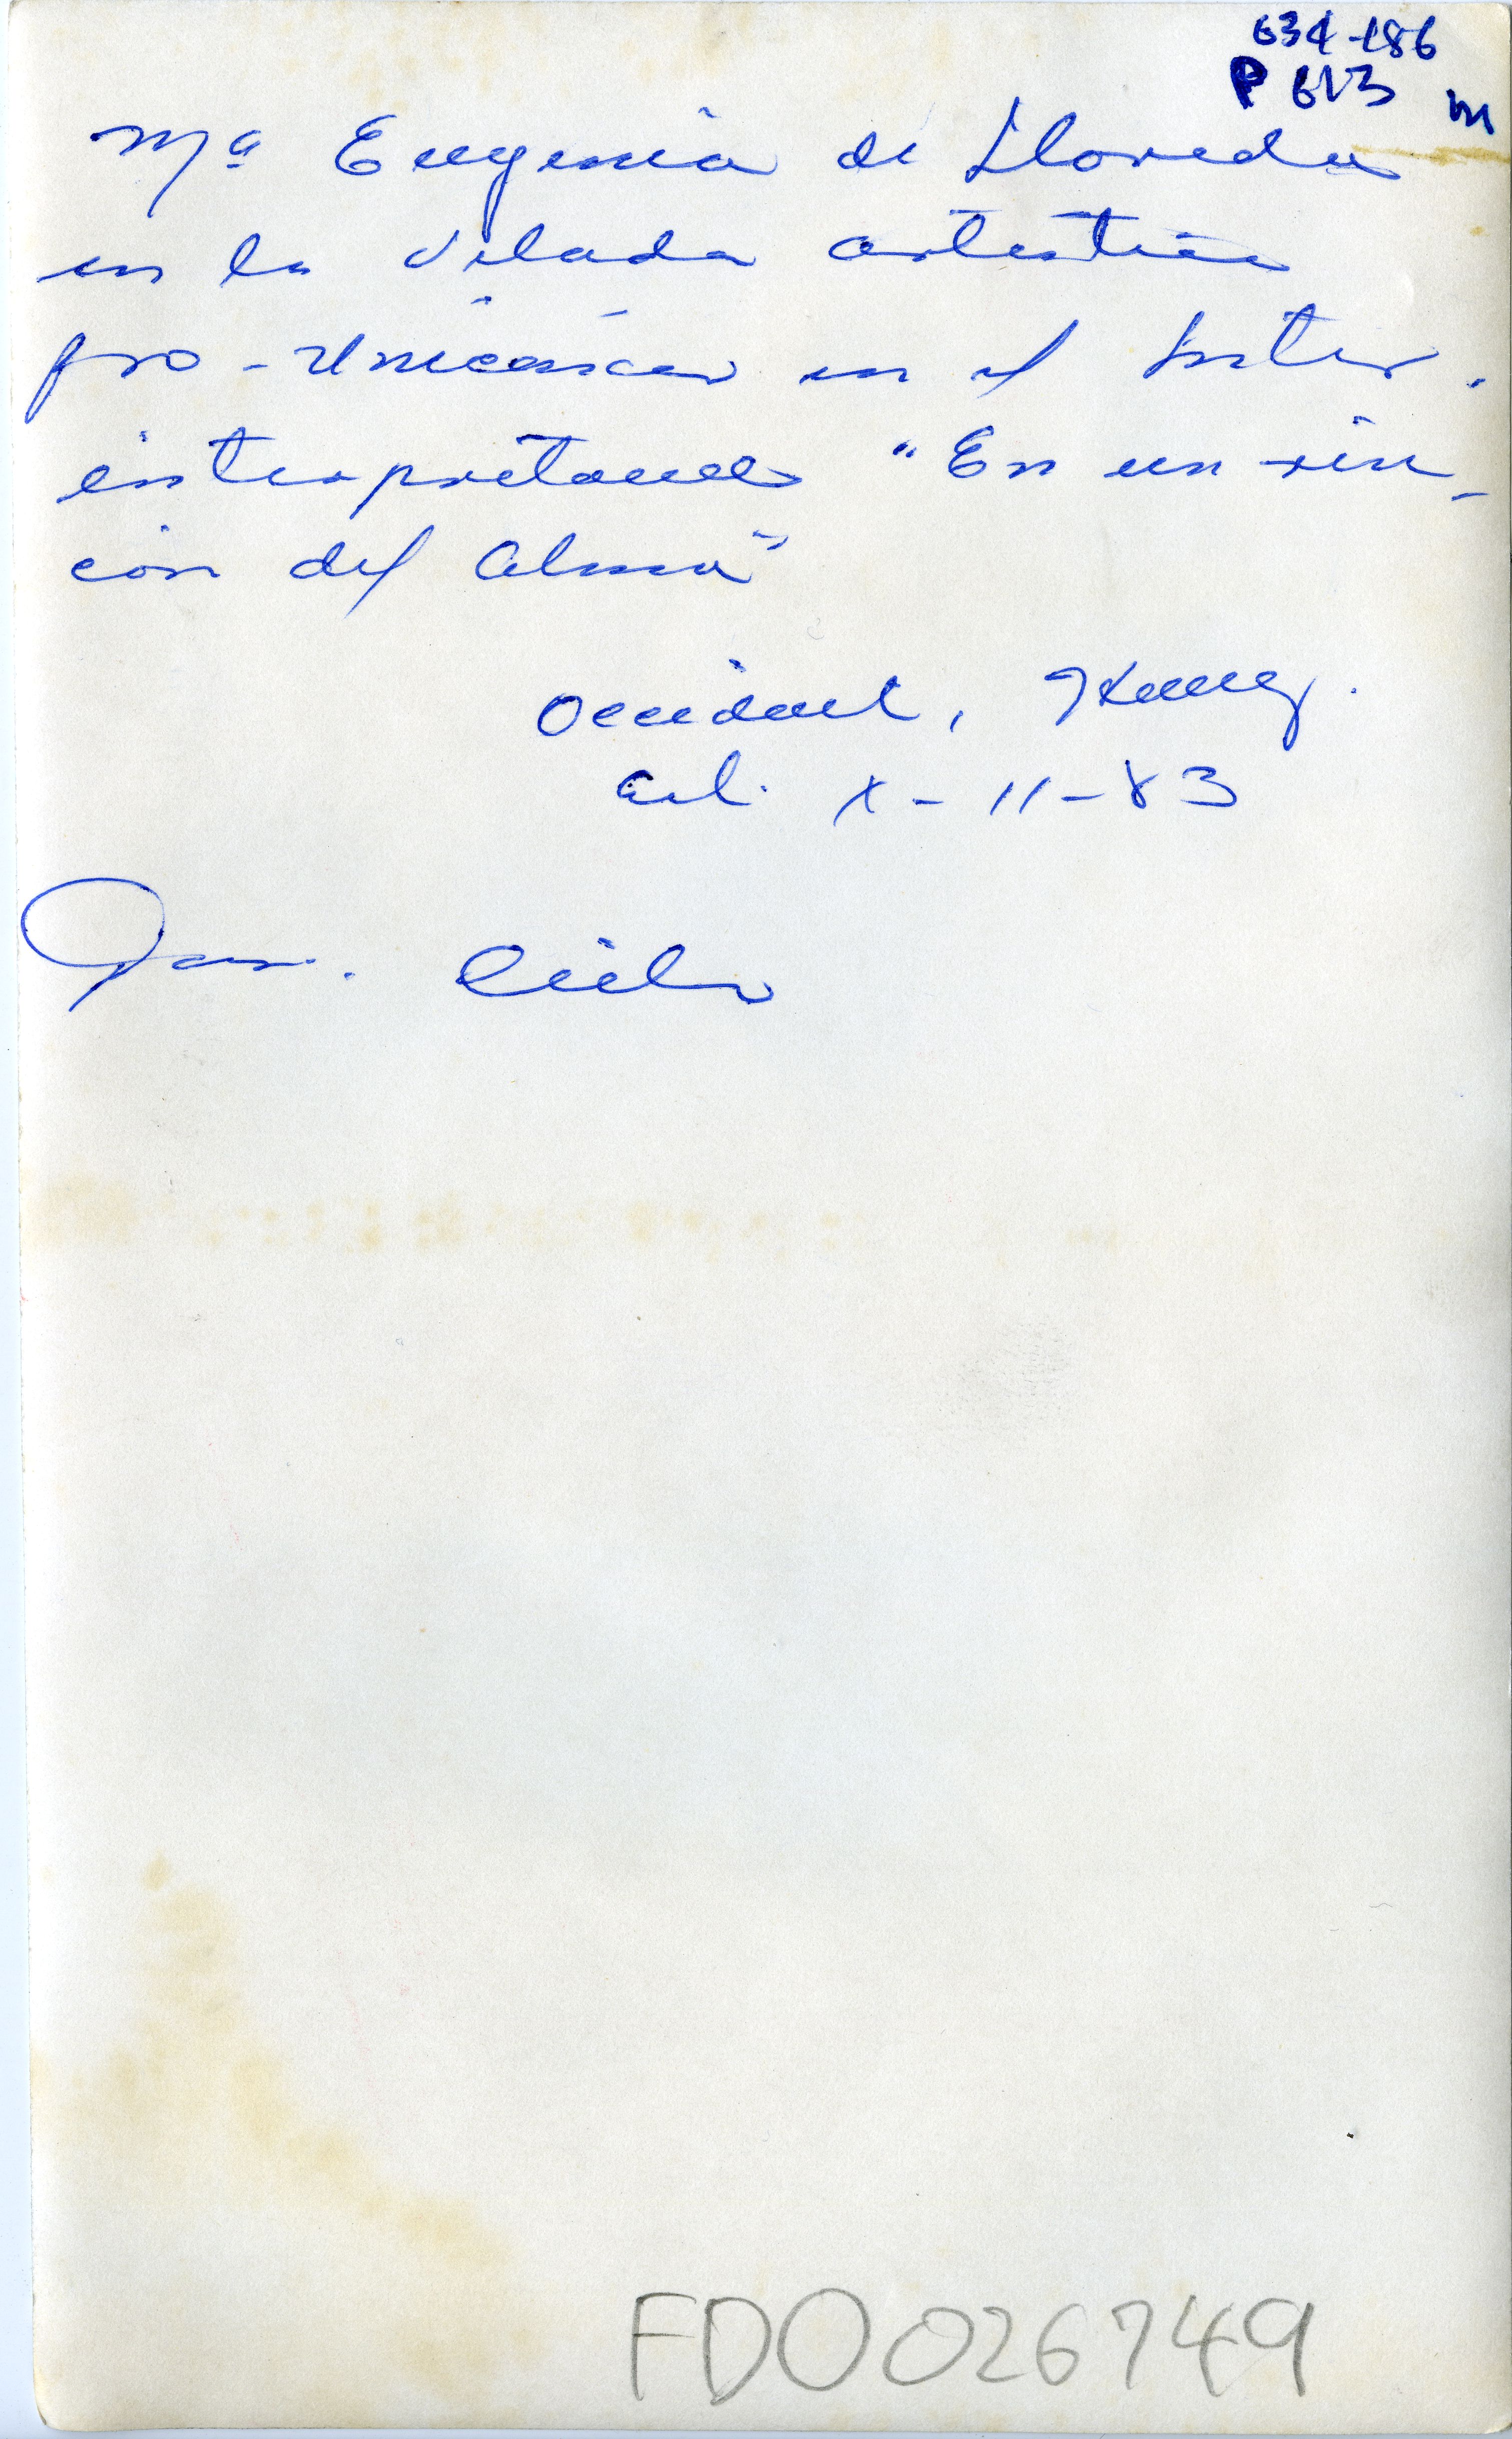 634-186
P 613 m
Mª Eugenia de Lloreda
en la velada artística
pro-Unicáncer en el Inter.
interpretando "En un rin-
cón del alma"
Occident,
Cal. X-11-83
Cielo
FDO026749